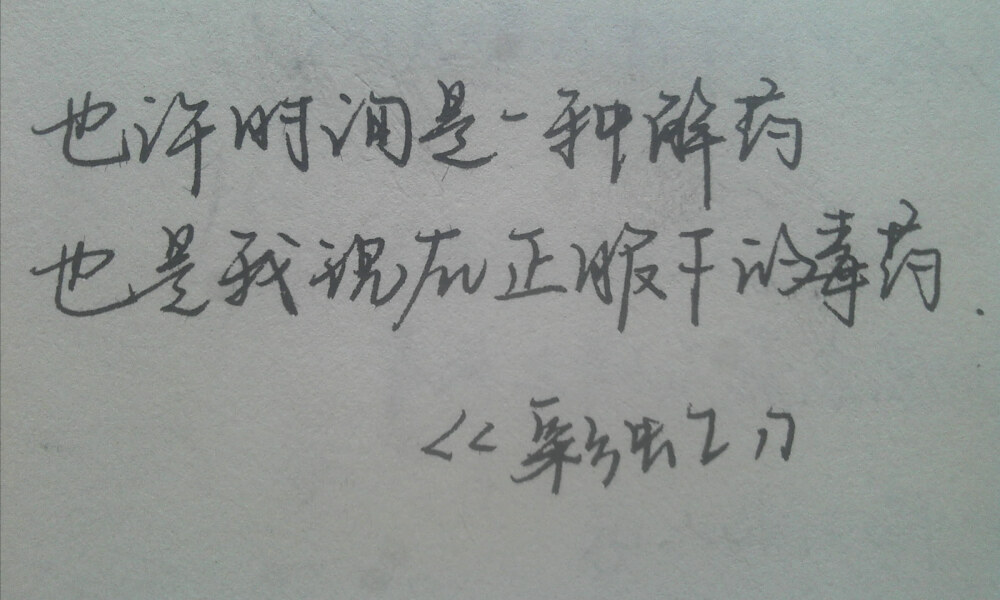 也许时间是一种解药
也是我现在正服下的毒药.
<<彩虹>>